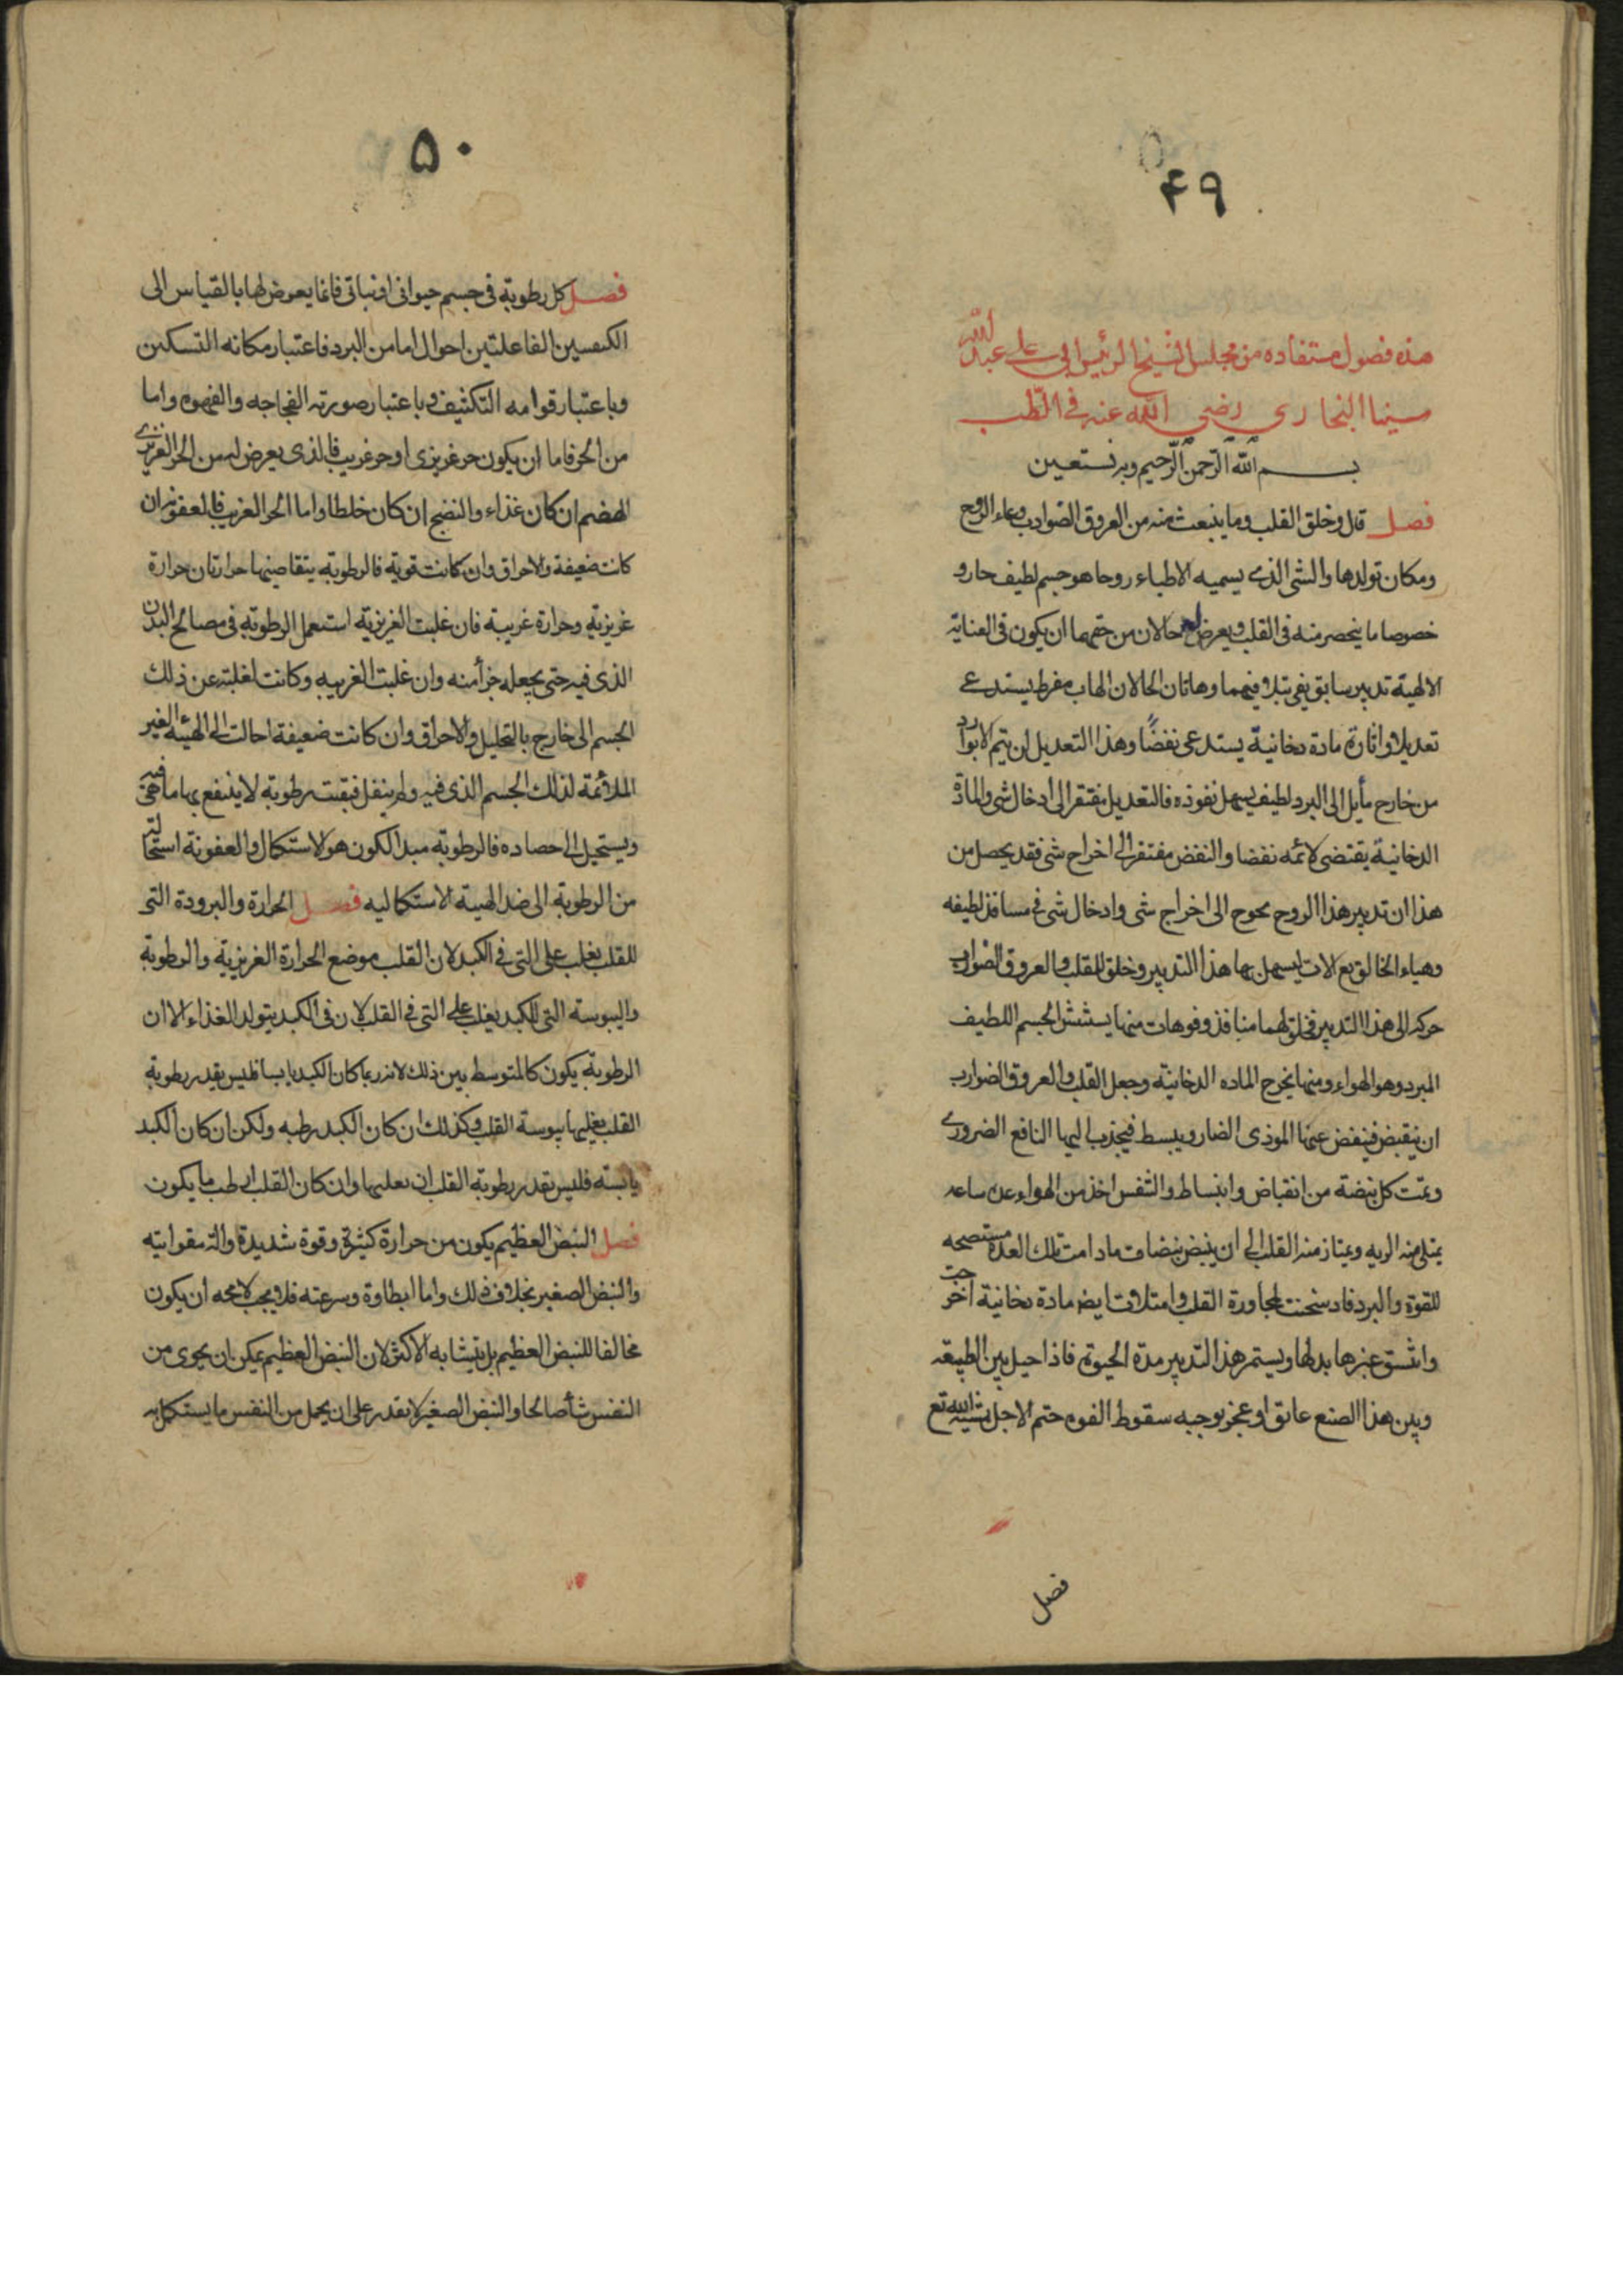 ۴۹
هذه فصول مستفاده من مجلس الشيخ الرئيس ابي على عبد الله
سينا البخارى رضى الله عنه فى الطب
بسم الله الرحمن الرحيم وبه نستعين
فصل قال وخلق القلب وما ينبعث منه من العروق الضوارب وعاء الروح
ومكان تولدها والشى الذى يسميه الاطباء روحا هو جسم لطيف حار و
خصوصا ما ينحصر منه فى القلب ويعرض له حالان من حقهما ان يكون فى العناية
الالهية تدبير سابق يفى بتلافيهما وهاتان الحالان الهاب مفرط يستدعى
تعديلا واثارة مادة دخانية يستدعى نفضًا وهذا التعديل لن يتم الا بوارد
من خارج مأيل الى البرد لطيف يسهل نفوذه فالتعديل مفتقر الى ادخال شى والمادة
الدخانية يقتضى لا ئمه نفضا والنفض مفتقر الى اخراج شى فقد يحصل من
هذا ان تدبير هذا الروح يحوج الى اخراج شى وادخال شى فى مسافذ لطيفه
وهياء الخالق تع الات ليسهل بها هذا التدبير وخلق للقلب والعروق الضوارب
حركه الى هذا التدبير فخلق لهما منافذ وفوهات منها يستنشق الجسم اللطيف
المبرد وهو الهواء ومنها يخرج الماده الدخانية وجعل القلب والعروق الضوارب
ان ينقبض فينفض عنها الموذى الضار ويبسط فيجذب اليها النافع الضرورى
وتمت كل نبضة من انقباض وانبساط والتنفس اخذ من الهواء عن ساعه
يمتلى منه الريه ويمتاز منه القلب الى ان ينبض نبضات مادامت تلك العدة مستصحه
للقوة والبرد فاد سخنت لمجاورة القلب وامتلات ايضا مادة دخانية اخرجت
وانشق غيرها بدلها ويستمر هذا التدبير مدة الحيوة فاذا حيل بين الطبيعه
وبين هذا الصنع عائق او عجز يوجبه سقوط القوه حتم الاجل بمشية الله تع
فصل
۵۰
فصل كل رطوبة فى جسم حيوانى او نباتى فانما يعرض لها بالقياس الى
الكيفيتين الفاعلتين احوال اما من البرد فاعتبار مكانه التسكين
وباعتبار قوامه التكثيف وباعتبار صورته الفجاجه والفهوه واما
من الحر فاما ان يكون حر غريزى او حر غريب فالذى يعرض لسن الحر الغريزى
الهضم ان كان غذاء والنضج ان كان خلطا واما الحر الغريب فالعفونه ان
كانت ضعيفة والاحراق وان كانت قوية فالرطوبة يتقاضيها حرارتان حرارة
غريزية وحرارة غريبة فان غلبت الغريزية استعمل الرطوبة فى مصالح البدن
الذى فيه حتى يجعله جزأ منه وان غلبت الغريبه وكانت لغلبته عن ذلك
الجسم الى خارج بالتحليل والاحراق وان كانت ضعيفة احالت الى الهيئه الغير
الملائمة لذلك الجسم الذى فيه ولم ينفل فبقيت رطوبة لا ينتفع بها ما هى فيه
ويستحيل الى حصاده فالرطوبة مبدا الكون هو الاستكمال والعفونة استحالته
من الرطوبة الى ضد الهيئة الاستكماليه فصل الحرارة والبرودة التى
للقلب يغلب على التى فى الكبد لان القلب موضع الحرارة الغريزية والرطوبة
واليبوسة التى للكبد يغلب على التى فى القلب لان فى الكبد يتولد الغذاء الا ان
الرطوبة يكون كالمتوسط بين ذلك لانه ربما كان الكبد يابسا فليس يقدر رطوبة
القلب يغلبها يبوسة القلب وكذلك ان كان الكبد رطبه ولكن ان كان الكبد
يابسته فليس يقدر رطوبة القلب ان تغلبها وان كان القلب ارطب ما يكون
فصل النبض العظيم يكون من حرارة كثيرة وقوة شديدة والة مقواتيه
والنبض الصغير بخلاف ذلك واما ابطاوة وسرعته فلا يجب لا محه ان يكون
مخالفا للنبض العظيم بل يتشابه الاكثر لان النبض العظيم يمكن ان يحوى من
النفس شأ صالحا والنبض الصغير لا يقدر على ان يحمل من النفس ما يستكمل به